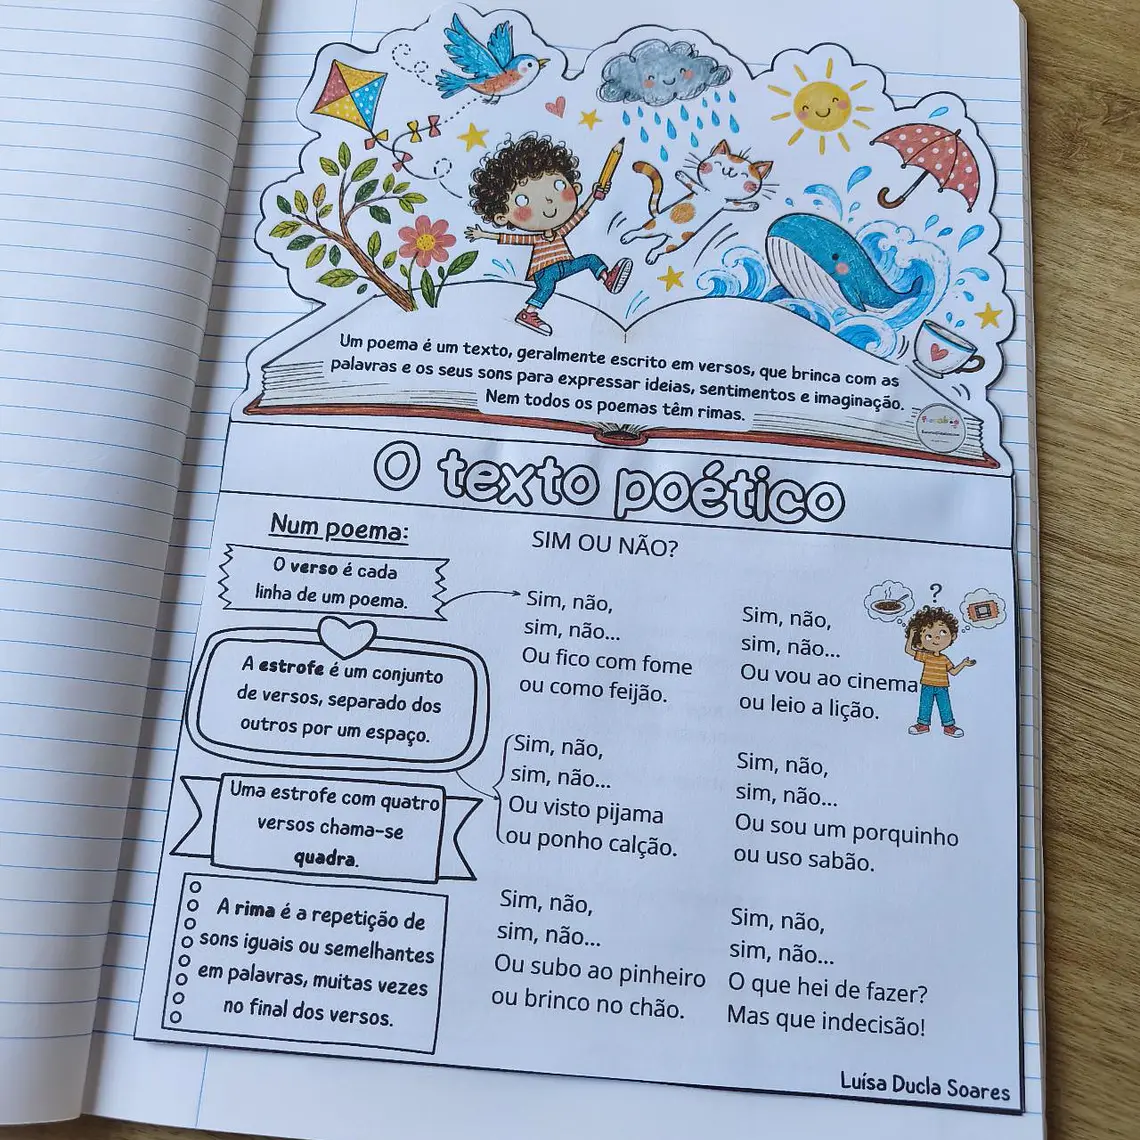 Um poema é um texto, geralmente escrito em versos, que brinca com as
palavras e os seus sons para expressar ideias, sentimentos e imaginação.
Nem todos os poemas têm rimas.
O texto poético
Num poema:
O verso é cada
linha de um poema.
A estrofe é um conjunto
de versos, separado dos
outros por um espaço.
Uma estrofe com quatro
versos chama-se
quadra.
A rima é a repetição de
sons iguais ou semelhantes
em palavras, muitas vezes
no final dos versos.
SIM OU NÃO?
Sim, não,
sim, não...
Ou fico com fome
ou como feijão.
Sim, não,
sim, não...
Ou visto pijama
ou ponho calção.
Sim, não,
sim, não...
Ou subo ao pinheiro
ou brinco no chão.
?
Sim, não,
sim, não...
Ou vou ao cinema
ou leio a lição.
Sim, não,
sim, não...
Ou sou um porquinho
ou uso sabão.
Sim, não,
sim, não...
O que hei de fazer?
Mas que indecisão!
Luísa Ducla Soares